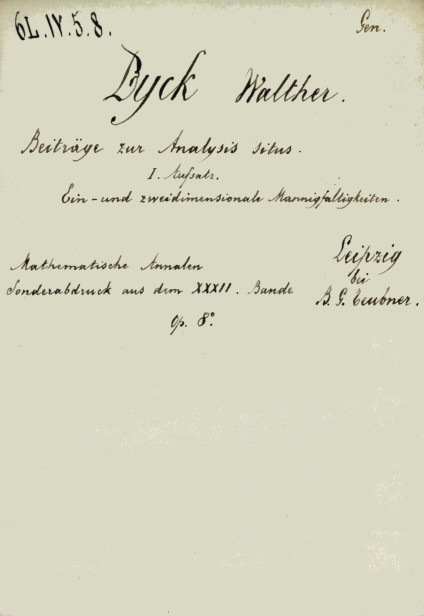 6L.IV.5.8.
Gen.
Dyck Walther.
Beiträge zur Analysis situs.
I. Aufsatz.
Ein- und zweidimensionale Mannigfaltigkeiten.
Mathematische Annalen
Sonderabdruck aus dem XXXII. Bande
Leipzig
bei
B. G. Teubner.
Op. 8°.